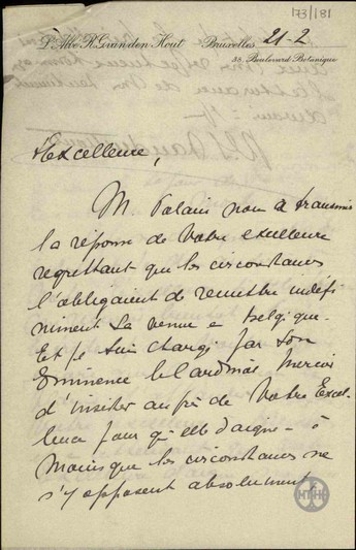 173/181
L'Abbé R. G. van den Hout Bruxelles
21-2
38, Boulevard Botanique
Excellence,
M. Palais nous a transmis
la réponse de Votre Excellence
regrettant que les circonstances
l'obligeaient de remettre indéfi
niment sa venue e Belgique.
Et je suis chargé par Son
Eminence le Cardinal Mercier
d'insister auprès de Votre Excel-
lence pour qu'elle daigne - à
moins que les circonstances ne
s'y opposent absolument